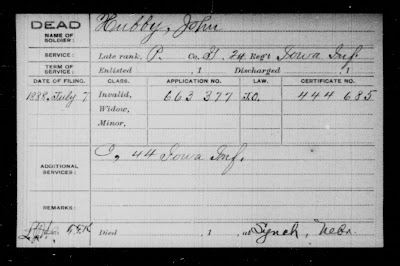 DEAD Hubby, John
NAME OF
SOLDIER:
SERVICE: Late rank, P. Co. D. 24 Reg't Iowa Inf.
TERM OF
SERVICE: Enlisted , 1 Discharged , 1
DATE OF FILING. CLASS. APPLICATION NO. LAW. CERTIFICATE NO.
1888, July 7 Invalid, 663 377 444 685
Widow,
Minor,
C, 44 Iowa Inf.
ADDITIONAL
SERVICES:
REMARKS:
Died , 1 , at Lynch, Nebr.